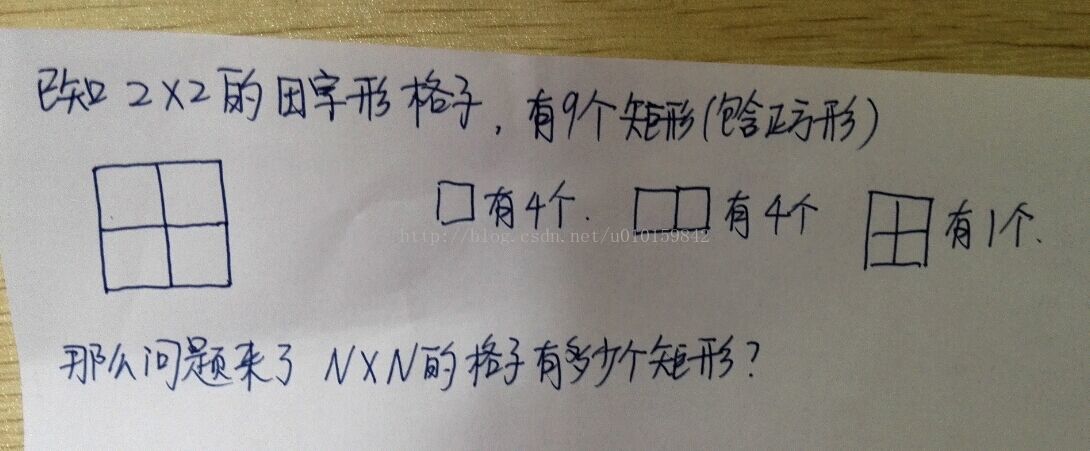 已知 2×2 的田字形格子, 有9个矩形(包含正方形)
有4个. 有4个 有1个.
http://blog.csdn.net/u010159842
那么问题来了 N×N的格子有多少个矩形?